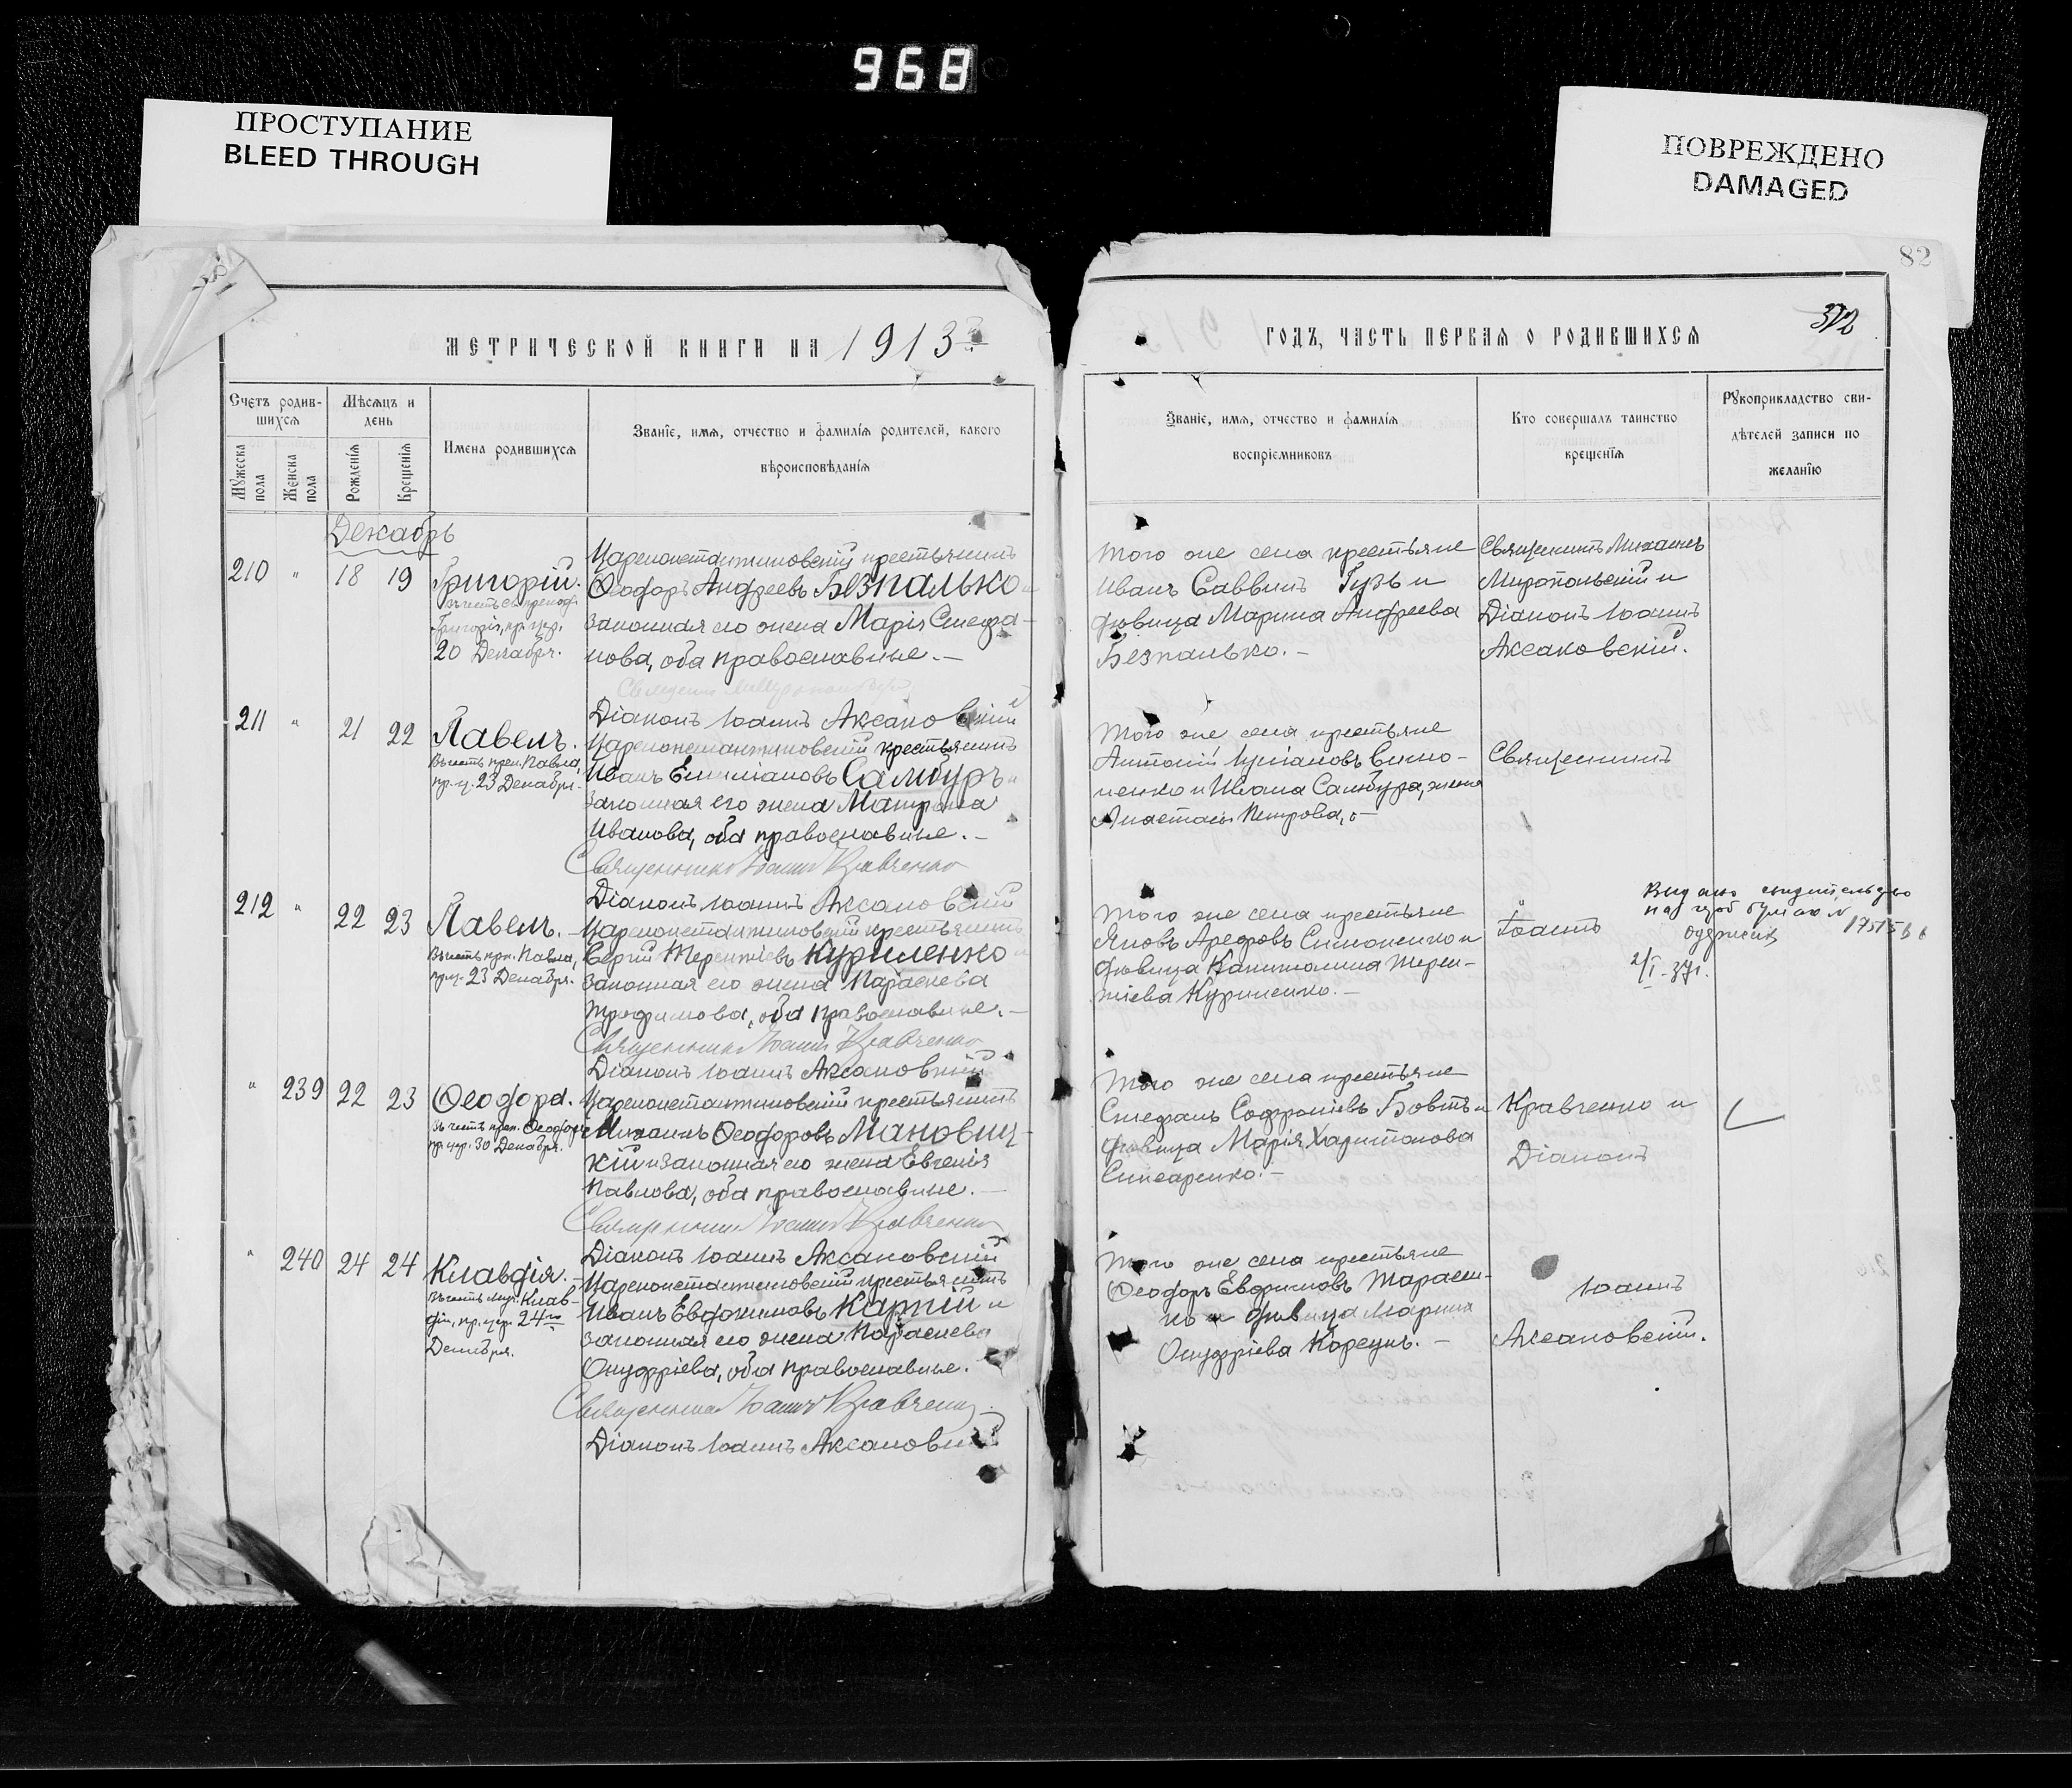 968
ПРОСТУПАНИЕ
BLEED THROUGH
ПОВРЕЖДЕНО
DAMAGED
82
372
МЕТРИЧЕСКОЙ КНИГИ НА 1913
Счетъ родив-
шихся
Мѣсяцъ и
день
Мужеска
пола
Женска
пола
Рожденія
Крещенія
Имена родившихся
Званіе, имя, отчество и фамилія родителей, какого
вѣроисповѣданія
Декабрь
210 " 18 19
Григорій.
Григорія, пр. цер.
20 Декабря.
Цареконстантиновскій крестьянинъ
Ѳеодоръ Андреевъ Безпалько и
законная его жена Марія Стефа-
нова, оба православные.
Діаконъ Іоаннъ Аксаковскій
211 " 21 22
Павелъ.
Въ честь преп. Павла,
пр. ц. 23 Декабря.
Цареконстантиновскій крестьянинъ
Иванъ Емиліановъ Самбуръ и
законная его жена Матрона
Иванова, оба православные.
Священникъ Іоаннъ Кравченко
Діаконъ Іоаннъ Аксаковскій
212 " 22 23
Павелъ.
Въ честь прп. Павла,
пр. ц. 23 Декабря.
Цареконстантиновскій крестьянинъ
Сергій Терентіевъ Куриленко и
законная его жена Параскева
Трофимова, оба православные.
Священникъ Іоаннъ Кравченко
Діаконъ Іоаннъ Аксаковскій
" 239 22 23
Ѳеодора.
Въ честь преп. Ѳеодоры
пр. цер. 30 Декабря.
Цареконстантиновскій крестьянинъ
Михаилъ Ѳеодоровъ Мановиц-
кій и законная его жена Евгенія
Павлова, оба православные.
Священникъ Іоаннъ Кравченко
Діаконъ Іоаннъ Аксаковскій
" 240 24 24
Клавдія.
Въ честь муч. Клав-
діи, пр. цер. 24го
Декабря.
Цареконстантиновскій крестьянинъ
Иванъ Евдокимовъ Карпій и
законная его жена Параскева
Онуфріева, оба православные.
Священникъ Іоаннъ Кравченко
Діаконъ Іоаннъ Аксаковскій
ГОДЪ, ЧАСТЬ ПЕРВАЯ О РОДИВШИХСЯ
Званіе, имя, отчество и фамилія
воспріемниковъ
Кто совершалъ таинство
крещенія
Рукоприкладство сви-
дѣтелей записи по
желанію
Того же села крестьяне
Иванъ Саввинъ Гузь и
дѣвица Марина Андреева
Безпалько.
Священникъ Михаилъ
Миропольскій и
Діаконъ Іоаннъ
Аксаковскій.
Того же села крестьяне
ненко и Ивана Самбура, жена
Анастасія Петрова.
Священникъ
Того же села крестьяне
Яковъ Арефовъ Симоненко и
дѣвица Капитолина Терен-
тіева Куриленко.
Іоаннъ
2/I-37г.
Того же села крестьяне
Стефанъ Софроніевъ Бовтъ и
дѣвица Марія Харитонова
Слисаренко.
Кравченко и
Діаконъ
Того же села крестьяне
Ѳеодоръ Евфимовъ Тарасен-
ко и дѣвица Марина
Онуфріева Корсунъ.
Іоаннъ
Аксаковскій.